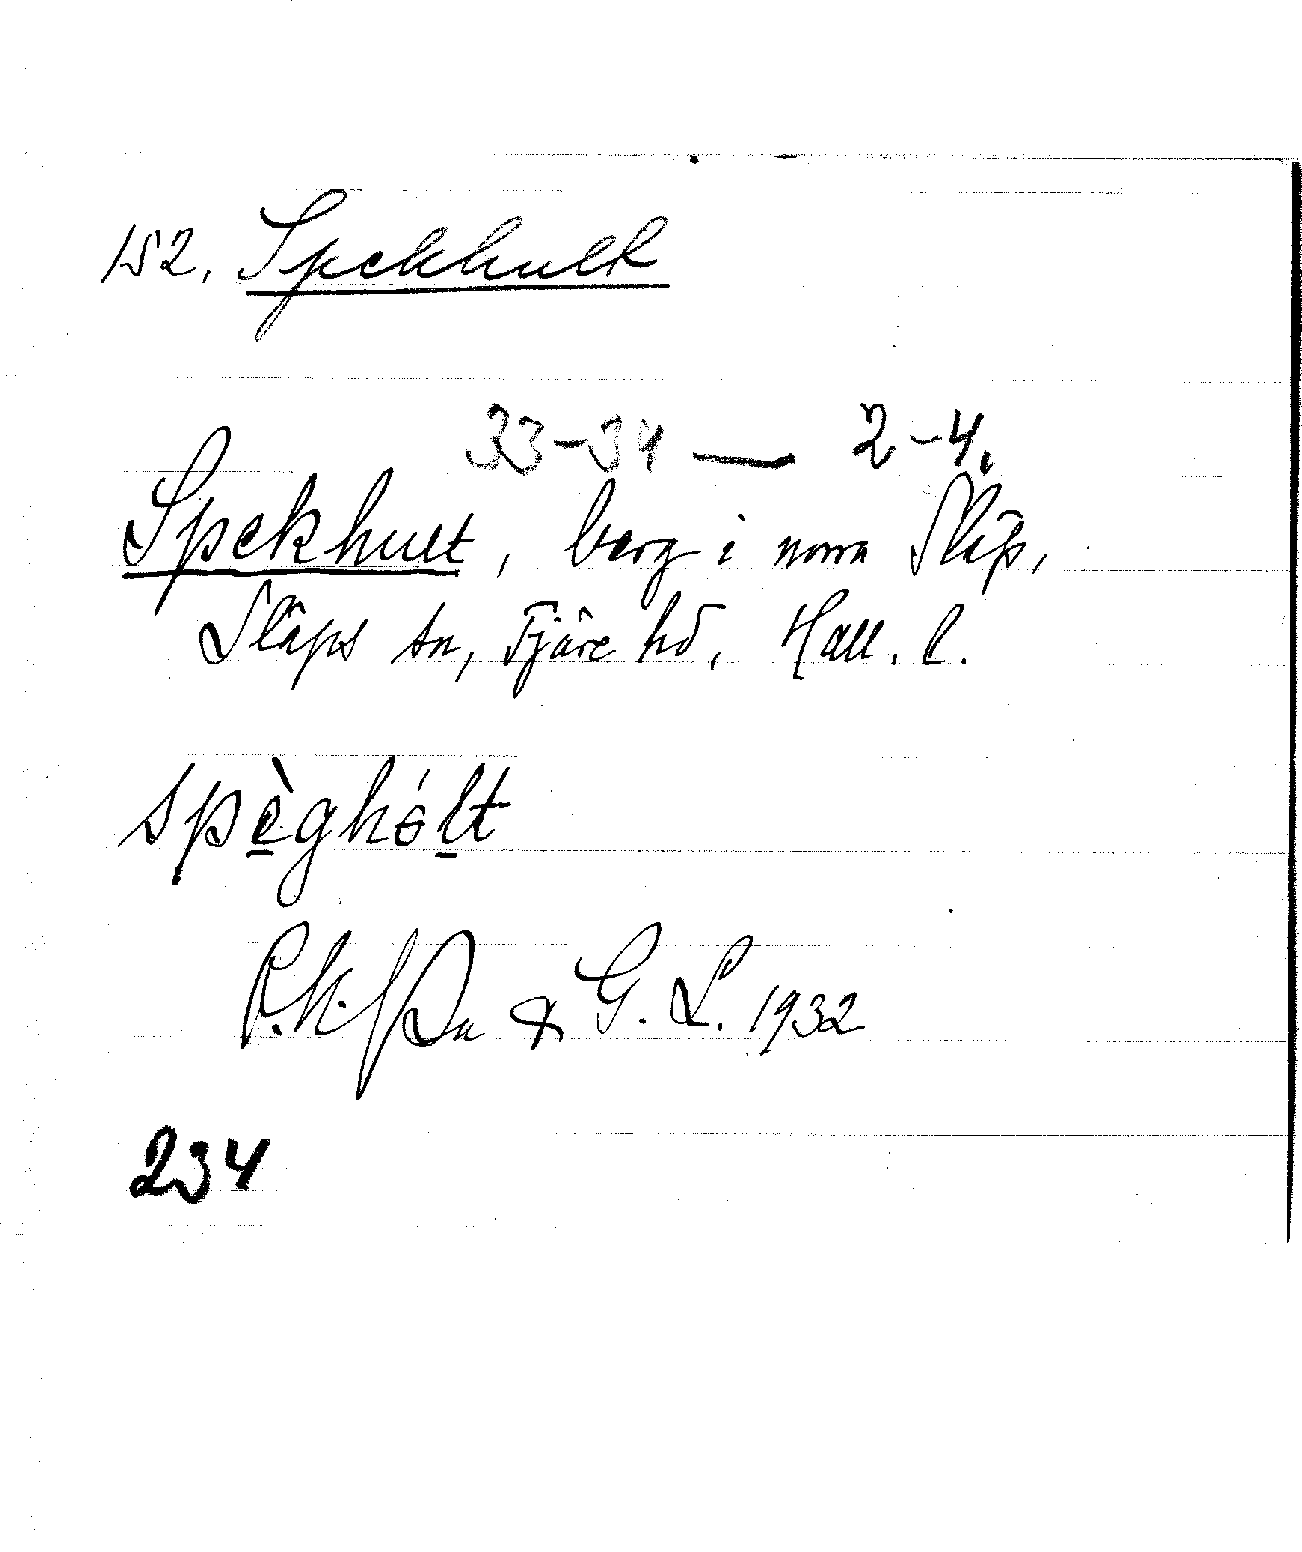 152. Spekhult
33-34 — 2-4.
Spekhult, berg i norra Släp,
Släps sn, Fjäre hd, Hall. l.
spèghólt
& G. L. 1932
234